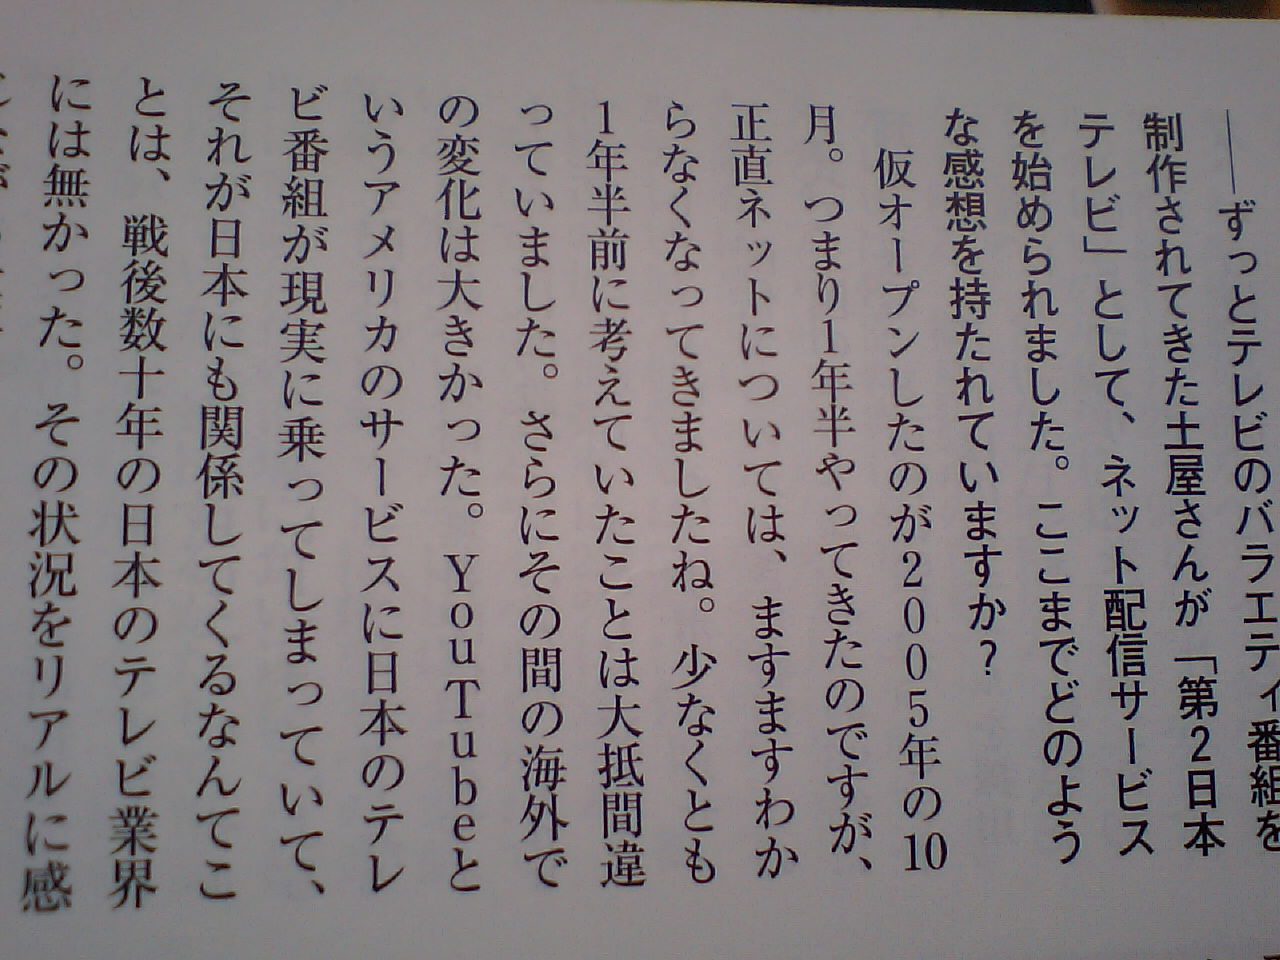 ――ずっとテレビのバラエティ番組を
制作されてきた土屋さんが「第2日本
テレビ」として、ネット配信サービス
を始められました。ここまでどのよう
な感想を持たれていますか？
仮オープンしたのが２００５年の10
月。つまり1年半やってきたのですが、
正直ネットについては、ますますわか
らなくなってきましたね。少なくとも
1年半前に考えていたことは大抵間違
っていました。さらにその間の海外で
の変化は大きかった。ＹｏｕＴｕｂｅと
いうアメリカのサービスに日本のテレ
ビ番組が現実に乗ってしまっていて、
それが日本にも関係してくるなんてこ
とは、戦後数十年の日本のテレビ業界
には無かった。その状況をリアルに感